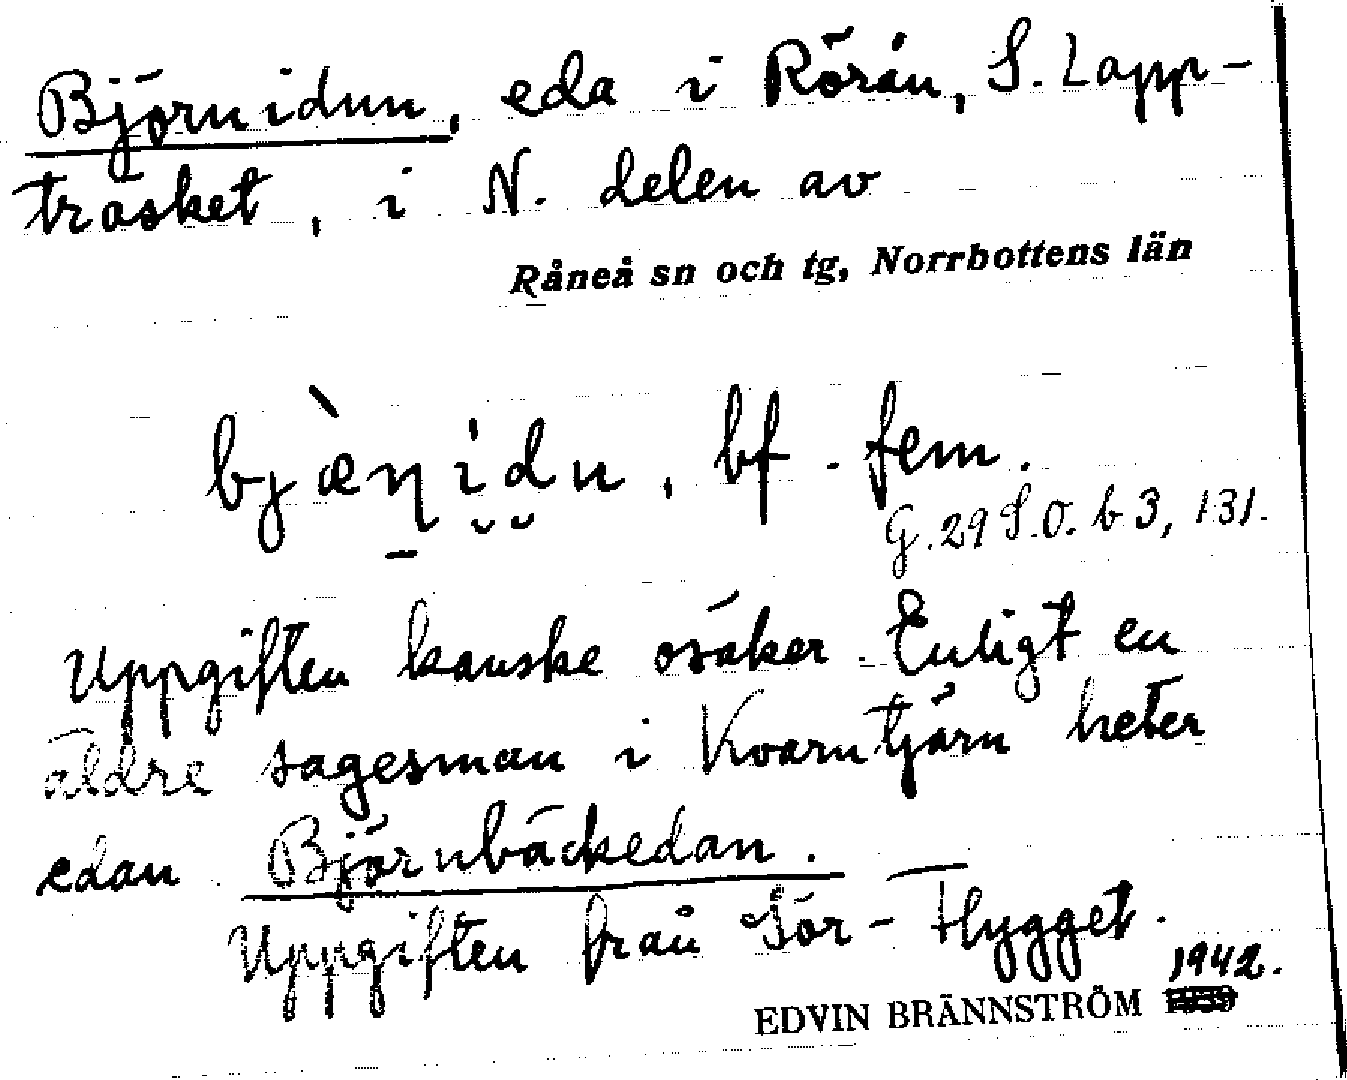 Björnidun, eda i Rörån, S. Lapp-
träsket, i N. delen av
Råneå sn och tg, Norrbottens län
bjæ̀ṇidu, bf. fem.
G. 29 S.O. b 3, 131.
Uppgiften kanske osäker. Enligt en
äldre sagesman i Kvarntjärn heter
edan Björnbäckedan.
Uppgiften från Sör-Flygget.
EDVIN BRÄNNSTRÖM 1942.